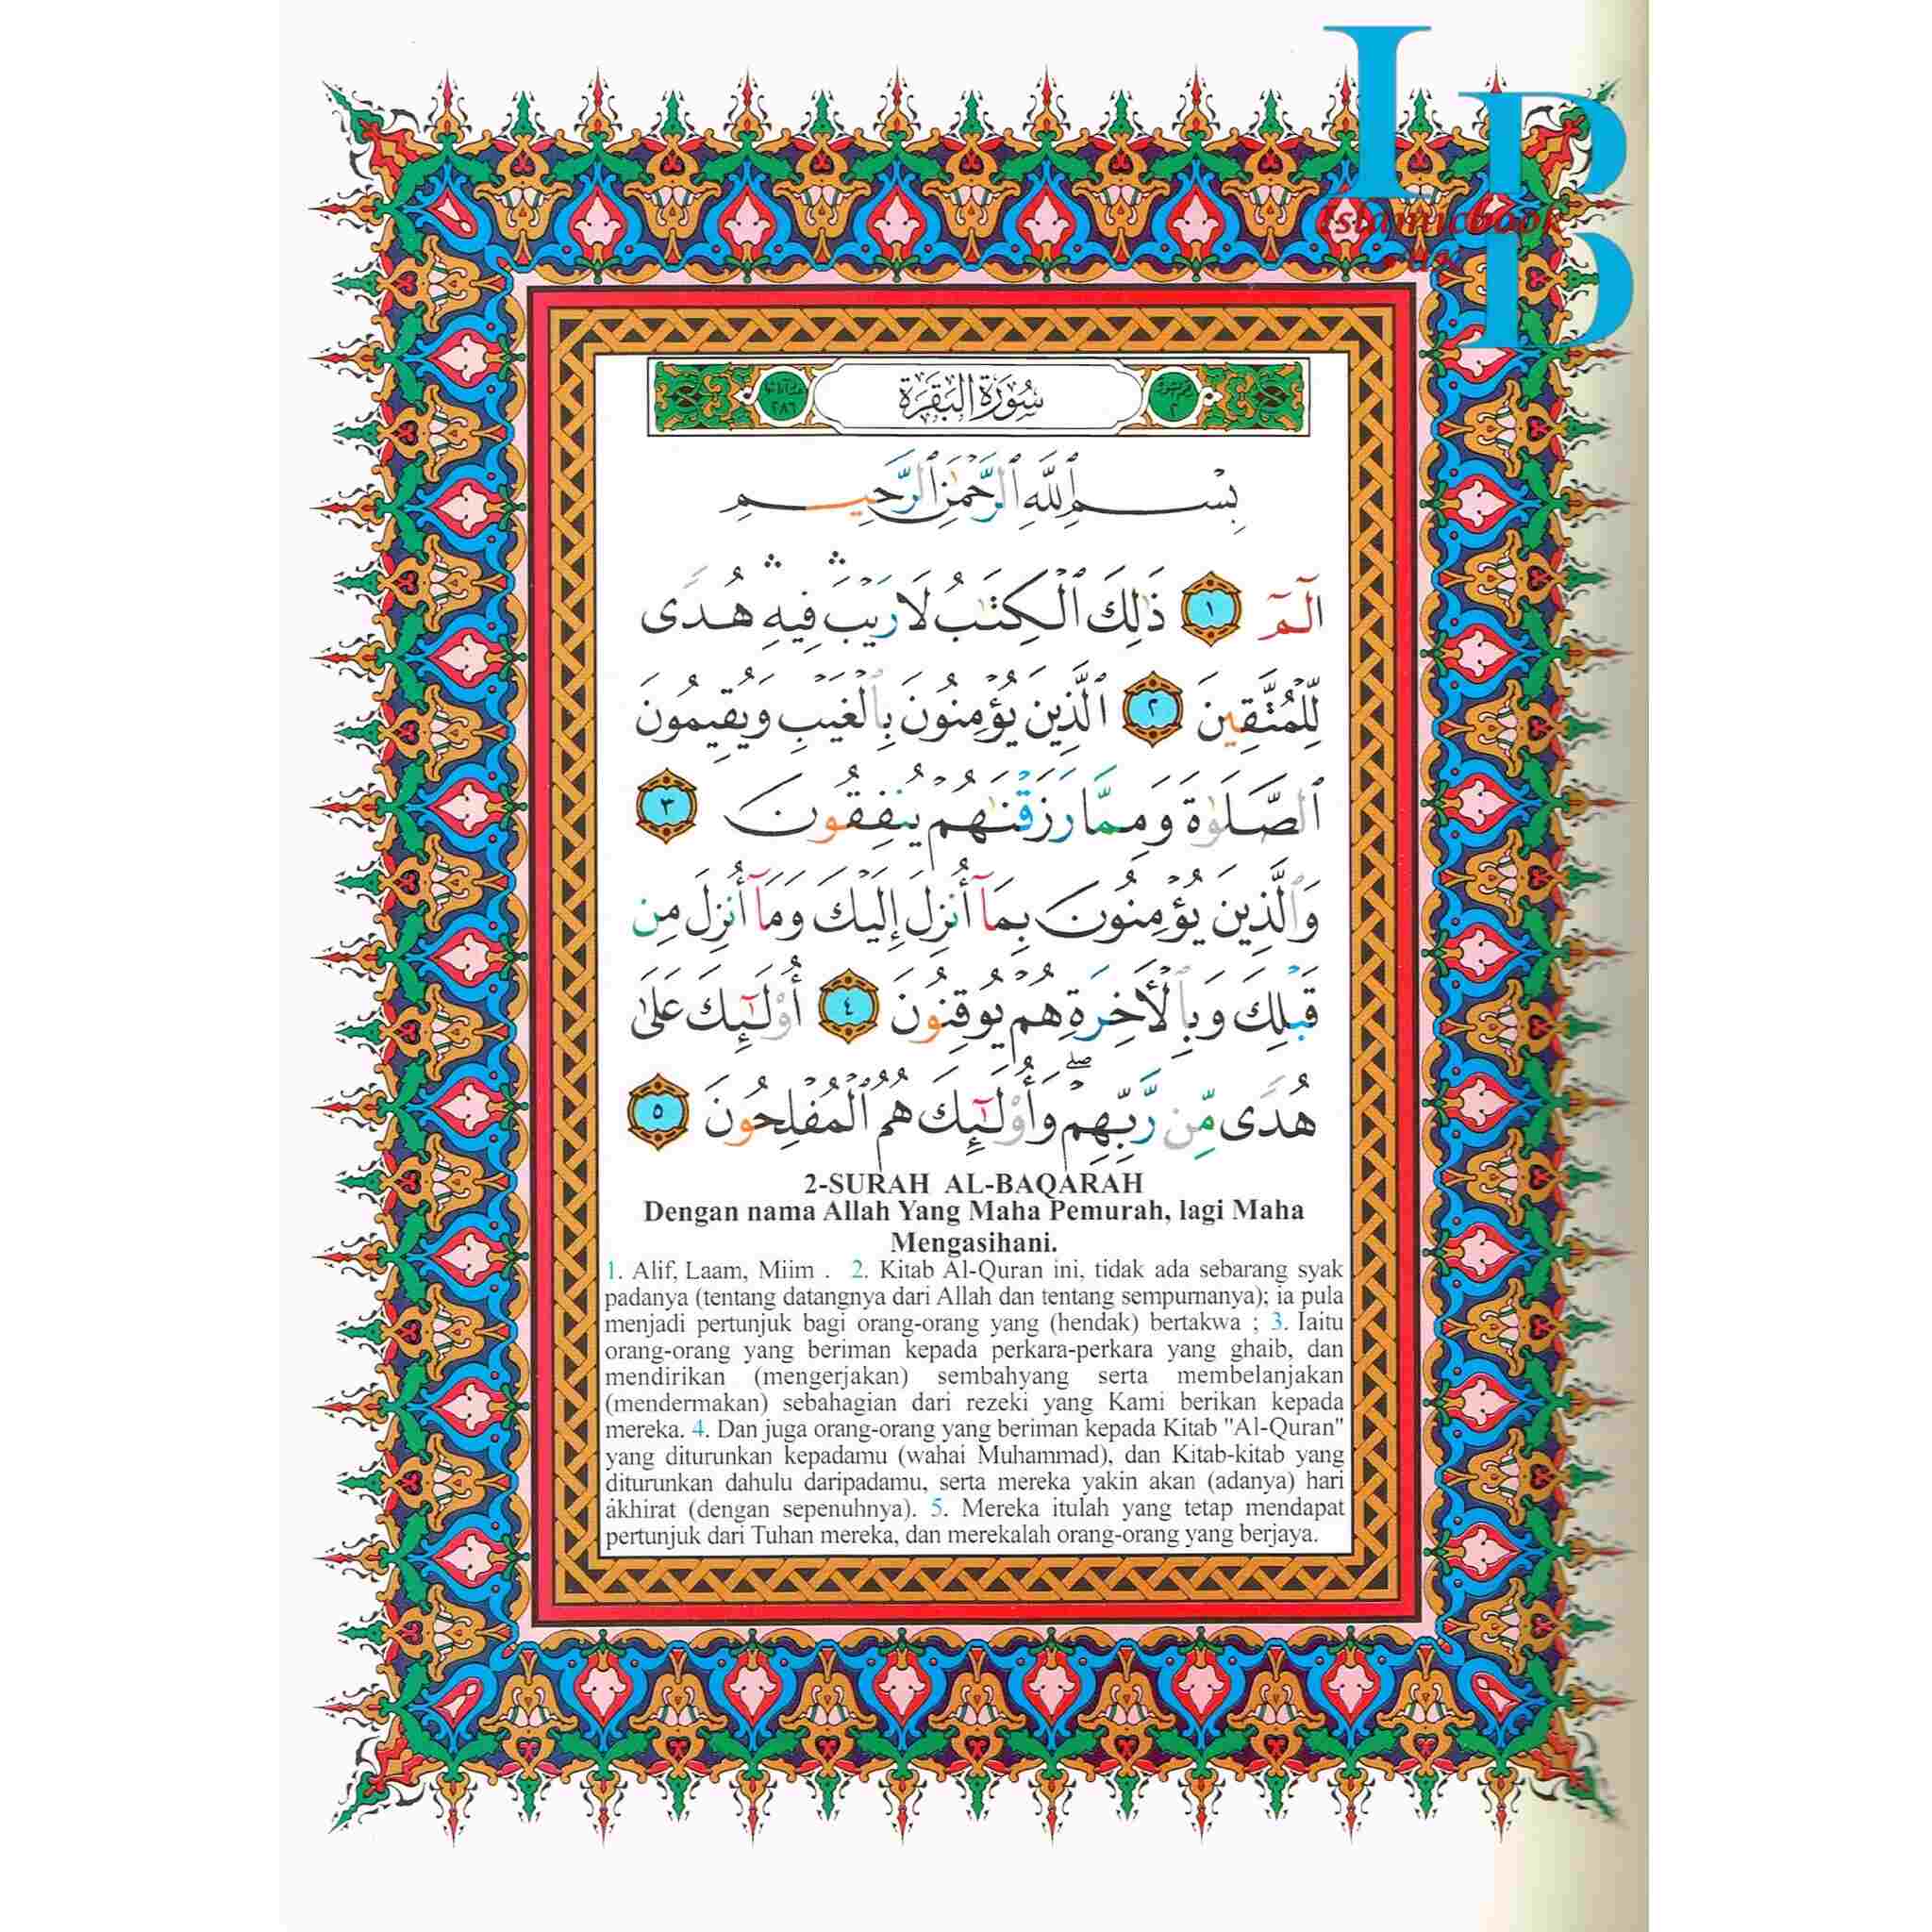 IB
Islamicbook
سُورَةُ البَقَرَةِ
رقم سورة ٢
٢٨٦
بِسْمِ ٱللَّهِ ٱلرَّحْمَٰنِ ٱلرَّحِيمِ
الٓمٓ ١ ذَٰلِكَ ٱلْكِتَٰبُ لَا رَيْبَ ۛ فِيهِ ۛ هُدًى
لِّلْمُتَّقِينَ ٢ ٱلَّذِينَ يُؤْمِنُونَ بِٱلْغَيْبِ وَيُقِيمُونَ
ٱلصَّلَوٰةَ وَمِمَّا رَزَقْنَٰهُمْ يُنفِقُونَ ٣
وَٱلَّذِينَ يُؤْمِنُونَ بِمَآ أُنزِلَ إِلَيْكَ وَمَآ أُنزِلَ مِن
قَبْلِكَ وَبِٱلْءَاخِرَةِ هُمْ يُوقِنُونَ ٤ أُو۟لَٰٓئِكَ عَلَىٰ
هُدًى مِّن رَّبِّهِمْ ۖ وَأُو۟لَٰٓئِكَ هُمُ ٱلْمُفْلِحُونَ ٥
2-SURAH AL-BAQARAH
Dengan nama Allah Yang Maha Pemurah, lagi Maha
Mengasihani.
1. Alif, Laam, Miim . 2. Kitab Al-Quran ini, tidak ada sebarang syak
padanya (tentang datangnya dari Allah dan tentang sempurnanya); ia pula
menjadi pertunjuk bagi orang-orang yang (hendak) bertakwa ; 3. Iaitu
orang-orang yang beriman kepada perkara-perkara yang ghaib, dan
mendirikan (mengerjakan) sembahyang serta membelanjakan
(mendermakan) sebahagian dari rezeki yang Kami berikan kepada
mereka. 4. Dan juga orang-orang yang beriman kepada Kitab "Al-Quran"
yang diturunkan kepadamu (wahai Muhammad), dan Kitab-kitab yang
diturunkan dahulu daripadamu, serta mereka yakin akan (adanya) hari
ákhirat (dengan sepenuhnya). 5. Mereka itulah yang tetap mendapat
pertunjuk dari Tuhan mereka, dan merekalah orang-orang yang berjaya.